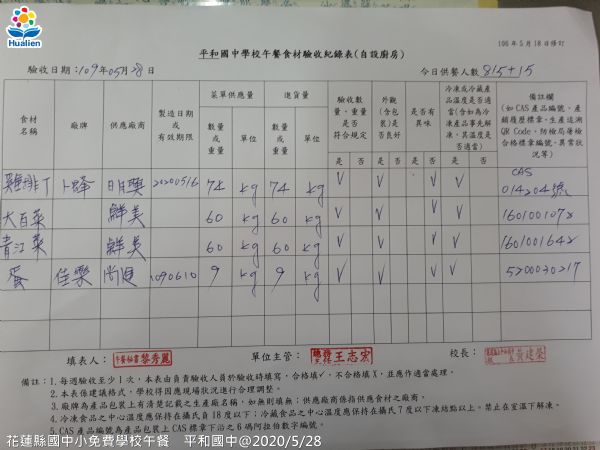 Hualien
106年5月18日修訂
平和國中學校午餐食材驗收紀錄表(自設廚房)
驗收日期:109年05月28日 今日供餐人數 815+15
食材名稱 廠牌 供應廠商 製造日期或有效期限 菜單供應量 進貨量 驗收數量、重量是否符合規定 外觀(含包裝)是否良好 是否有異味 冷凍或冷藏產品溫度是否適當(含如為冷凍產品事先解凍,其溫度是否適當) 備註欄(如CAS產品編號、產銷履歷標章、生產追溯QR Code、防檢局屠檢合格標章編號、異常狀況等)
數量或重量 單位 數量或重量 單位 是 否 是 否 是 否 是 否
雞排丁 卜蜂 明興 20200516 74 kg 74 kg V V V V CAS 014204號
大白菜 鮮美 60 kg 60 kg V V V V 1601001078
青江菜 鮮美 60 kg 60 kg V V V V 1601001648
蛋 佳樂 尚進 1090610 9 kg 9 kg V V V V 5200030217
填表人: 午餐秘書黎秀麗 單位主管: 王志宏 校長: 黃建榮
備註:1.每週驗收至少1次,本表由負責驗收人員於驗收時填寫,合格填✓,不合格填X,並應作適當處理。
2.本表係建議格式,學校得因應現場狀況進行合理調整。
3.廠牌為產品包裝上有清楚記載之生產廠名稱,如無則填無;供應廠商係指供應食材之廠商。
4.冷凍食品之中心溫度應保持在攝氏負18度以下;冷藏食品之中心溫度應保持在攝氏7度以下凍結點以上。禁止在室溫下解凍。
5.CAS產品編號為產品包裝上CAS標章下沿之6碼阿拉伯數字編號。
花蓮縣國中小免費學校午餐 平和國中@2020/5/28